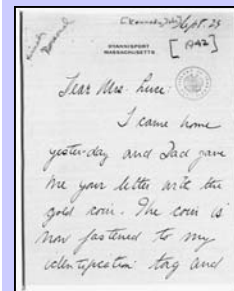 [Kennedy, John] Sept. 29
[1942]
HYANNISPORT
MASSACHUSETTS
Dear Mrs. Luce:
I came home
yester-day and Dad gave
me your letter with the
gold coin. The coin is
now fastened to my
identification tag and